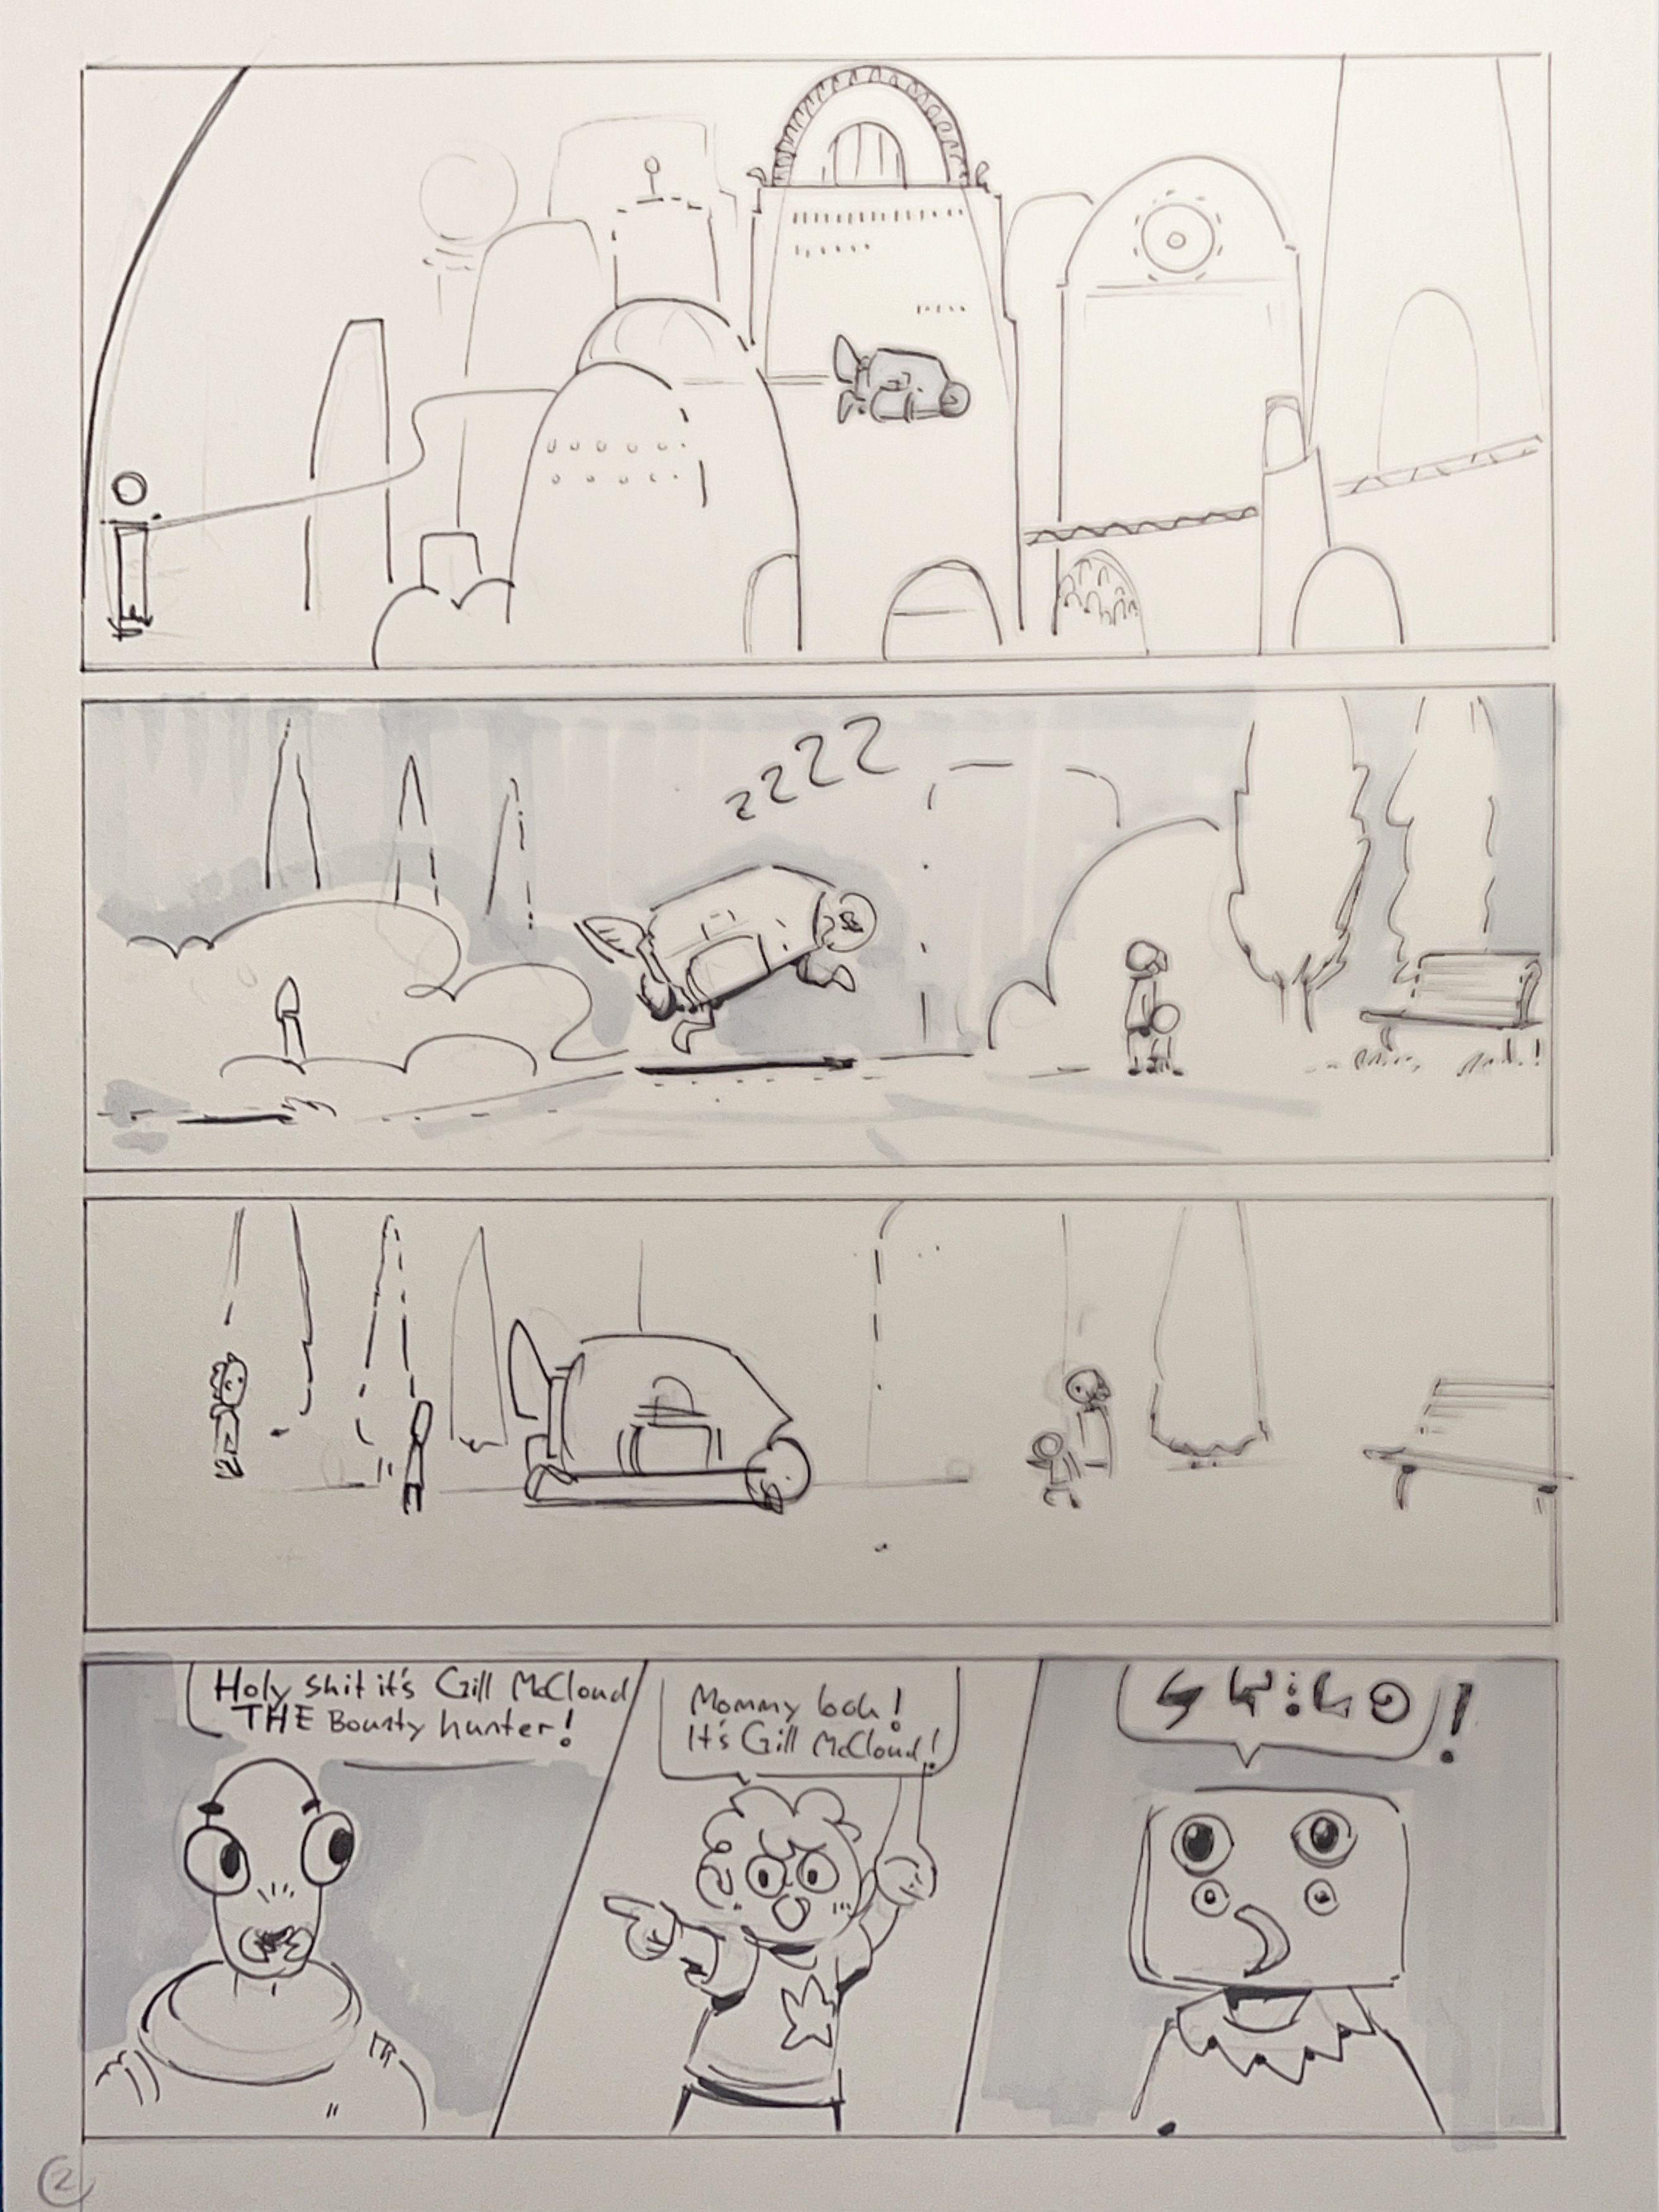 zzZZ
Holy shit it's Gill McCloud
THE Bounty hunter!
Mommy look!
It's Gill McCloud!
!
2